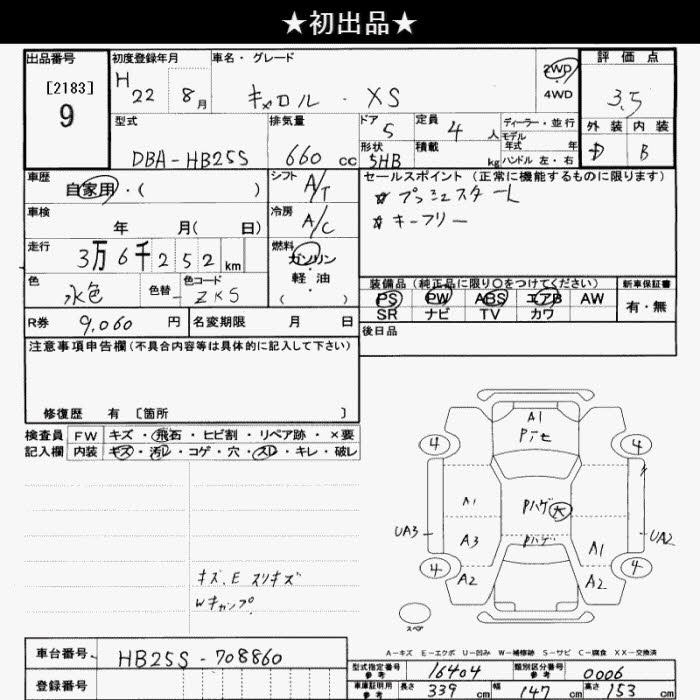 ★初出品★
出品番号 初度登録年月 車名・グレード 2WD 評価点
[2183] H 22 8月 キャロル・XS 4WD 3.5
9
型式 排気量 ドア 5 定員 4人 ディーラー・並行 外装 内装
モデル年式 年
DBA-HB25S 660cc 形状 5HB 積載 kg ハンドル 左・右 D B
車歴 自家用・( ) シフト A/T セールスポイント(正常に機能するものに限ります)
プッシュスタート
車検 年 月( 日) 冷房 A/C キーフリー
走行 3万6千252km 燃料 ガソリン・軽油 ( )
色 水色 色替 - 色コード ZKS
装備品(純正品に限り○をつけてください) 新車保証書
PS PW ABS エアB AW 有・無
SR ナビ TV カワ
R券 9,060円 名変期限 月 日 後日品
注意事項申告欄(不具合内容等は具体的に記入して下さい)
修復歴 有 〔箇所 〕
検査員 FW キズ・飛石・ヒビ割・リペア跡・×要
記入欄 内装 キズ・汚レ・コゲ・穴・スレ・キレ・破レ
A1
4 4
A1 Pハゲ 大
UA3 A3 Pハゲ A1 UA2
4 A2 A2 4
キズ、E スリキズ
スペア
A-キズ E-エクボ U-凹み W-補修跡 S-サビ C-腐食 XX-交換済
車台番号 HB25S-708860
登録番号
型式指定番号 参考 16404 類別区分番号 参考 0006
車庫証明用 参考 長さ 339cm 幅 147cm 高さ 153cm